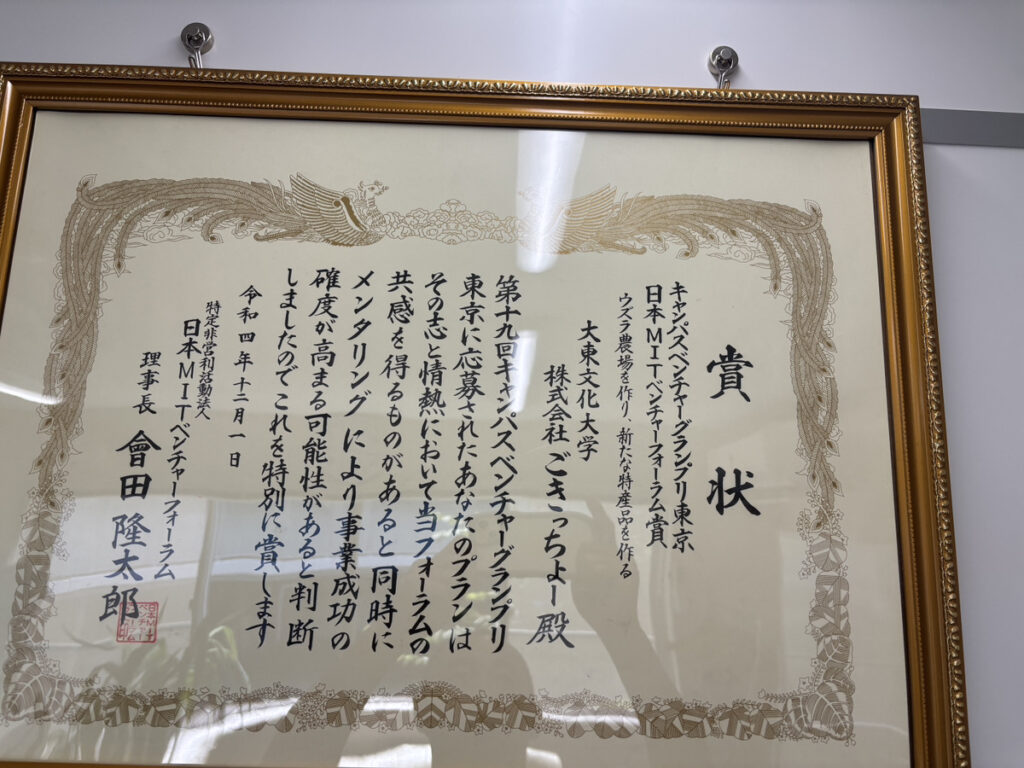 賞状
キャンパスベンチャーグランプリ東京
日本MITベンチャーフォーラム賞
ウズラ農場を作り、新たな特産品を作る
大東文化大学
株式会社ごきっちょー殿
第十九回キャンパスベンチャーグランプリ
東京に応募されたあなたのプランは
その志と情熱において当フォーラムの
共感を得るものがあると同時に
メンタリングにより事業成功の
確度が高まる可能性があると判断
しましたのでこれを特別に賞します
令和四年十二月一日
特定非営利活動法人
日本MITベンチャーフォーラム
理事長 會田隆太郎